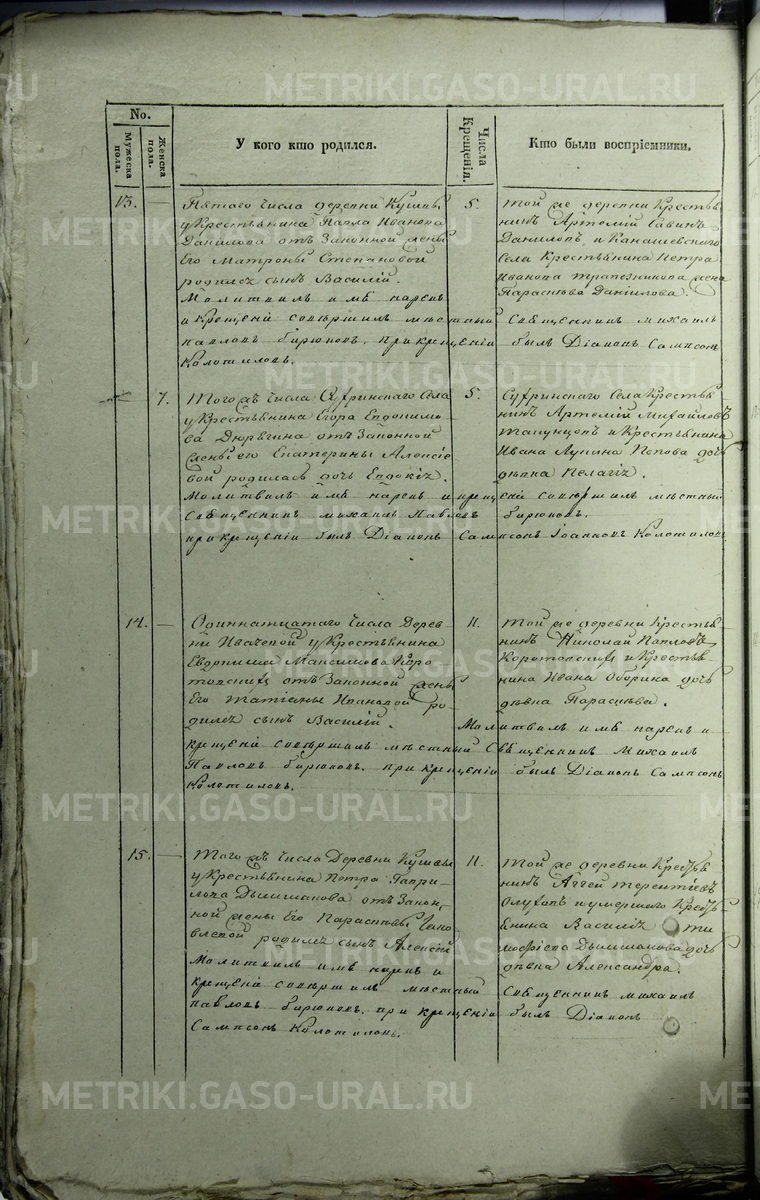 METRIKI.GASO-URAL.RU
No.
Мужеска пола.
Женска пола.
У кого кто родился.
Числа Крещенія.
Кто были воспріемники.
13.
—
Пятаго числа деревни
у Крестьянина Павла Иванова
Данилова отъ Законной жены
Его Матроны Степановой
родился сынъ Василій.
Молитвилъ имѣ нарекъ
и Крещеніе совершилъ мѣстный Священникъ Михаилъ
Павловъ Бирюковъ. при крещеніи былъ Діаконъ Сампсонъ
Колотиловъ.
5.
Той же деревни Крестья
нинъ Артемій Савинъ
Даниловъ, и
Села Крестьянина Петра
Иванова Трапезникова жена
Параскева Данилова.
—
7.
Того жъ числа Села
у Крестьянина Егора Евдокимо
ва отъ Законной
жены его Екатерины Алексіе
вой родилась дочь Евдокія.
Молитвилъ имѣ нарекъ и крещеніе совершилъ мѣстный
Священникъ Михаилъ Павловъ Бирюковъ.
при крещеніи былъ Діаконъ Сампсонъ Іоанновъ Колотиловъ
5.
Села Крестья
нинъ Артемій Михайловъ
и Крестьянина
Ивана Лупина Попова дочь
дѣвка Пелагія.
14.
—
Одиннатцатаго числа Дерев
ни Ивачевой у Крестьянина
Максимова Коро
товскихъ отъ Законной жены
Его Татіаны Ивановой ро
дился сынъ Василій.
Молитвилъ имѣ нарекъ и
крещеніе совершилъ мѣстный Священникъ Михаилъ
Павловъ Бирюковъ. при крещеніи былъ Діаконъ Сампсонъ
Колотиловъ.
11.
Той же деревни Крестья
нинъ Николай Павловъ
Коротовскихъ и Крестья
нина Ивана дочь
дѣвка Параскева.
15.
—
Того жъ числа Деревни
у Крестьянина Петра Гаври
лова Дышмакова отъ Закон
ной жены Его Параскевы
родился сынъ Алексій
Молитвилъ имѣ нарекъ и
крещеніе совершилъ мѣстный Священникъ Михаилъ
Павловъ Бирюковъ. при крещеніи былъ Діаконъ
Сампсонъ Колотиловъ.
11.
Той же деревни Крестья
нинъ Аггей Терентіевъ
и умершего Кресть
янина Василія Ти
мофѣева Дышмакова дочь
дѣвка Александра.